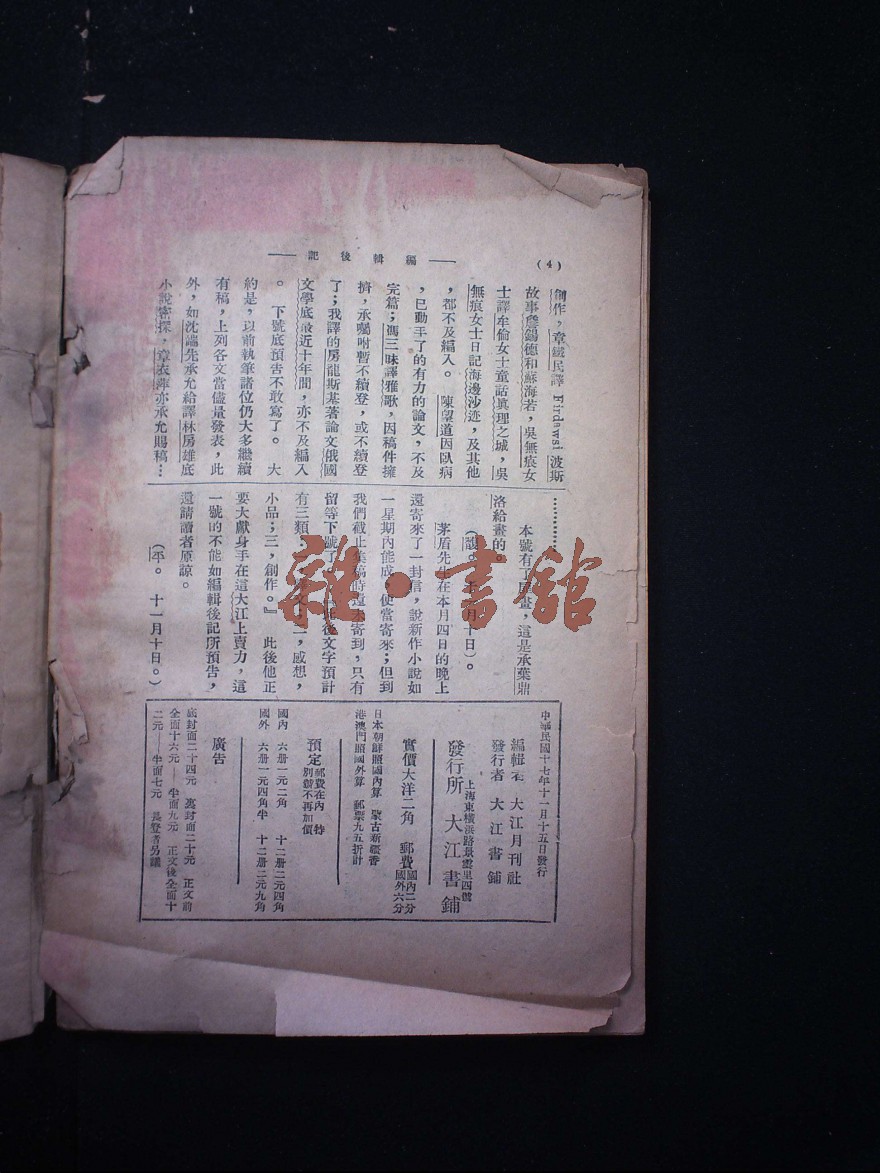 (4)
── 編輯後記 ──
創作，章鐵民譯 Firdawsi 波斯
故事詹錫德和蘇海若，吳無痕女
士譯牟倫女士童話眞理之城，吳
無痕女士日記海邊沙迹，及其他
，都不及編入。 陳望道因臥病
，已動手了的有力的論文，不及
完篇；馮三昧譯雅歌，因稿件擁
擠，承囑咐暫不續登，或不續登
了；我譯的房龍斯基著論文俄國
文學底最近十年間，亦不及編入
。 下號底預吿不敢寫了。 大
約是，以前執筆諸位仍大多繼續
有稿，上列各文當儘量發表，此
外，如沈端先承允給譯林房雄底
小說密探，章衣萍亦承允賜稿…
…………
本號有了 畫，這是承葉鼎
洛給畫的。
月十日）。
茅盾先生在本月四日的晚上
還寄來了一封信，說新作小說如
一星期內能成，便當寄來；但到
我們截止集稿時還未寄到，只有
留等下號了。 此後文字預計
有三類：一， 二，感想，
小品；三，創作。』 此後他正
要大獻身手在這大江上賣力，這
一號的不能如編輯後記所預吿，
還請讀者原諒。
（平。 十一月十日。）
中華民國十七年十一月十五日發行
編輯者 大江月刊社
發行者 大江書鋪
上海東橫浜路景雲里四號
發行所 大江書鋪
實價大洋二角 郵費國內二分國外六分
日本朝鮮照國內算 蒙古新疆香
港澳門照國外算 郵票九五折計
預定 郵費在內 特別號不再加價
國內 六册一元二角 十二册二元四角
國外 六册一元四角半 十二册二元九角
廣告
底封面二十四元 裏封面二十元 正文前
全面十六元──半面九元 正文後全面十
二元──半面七元 長登者另議
雜·書館